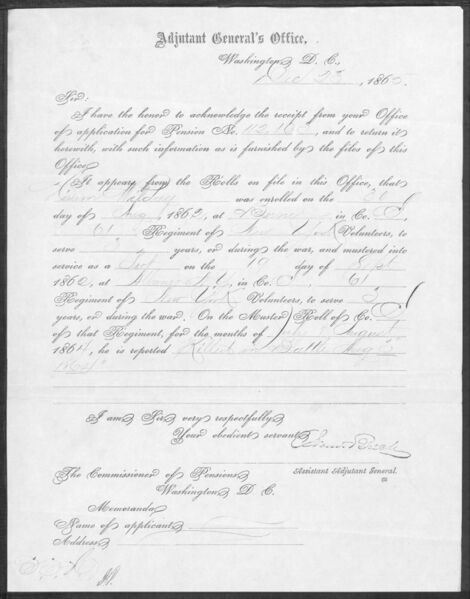 Adjutant General's Office,
Washington, D. C.,
Dec 23, 1865.
Sir:
I have the honor to acknowledge the receipt from your Office
of application for Pension No. 112,163, and to return it
herewith, with such information as is furnished by the files of this
Office.
It appears from the Rolls on file in this Office, that
was enrolled on the
day of Aug, 1862, at in Co.
61 Regiment of New York Volunteers, to
serve 3 years, or during the war, and mustered into
service as a on the day of Sept
1862, at in Co. 61
Regiment of New York Volunteers, to serve 3
years, or during the war. On the Muster Roll of Co.
of that Regiment, for the months of August
1864, he is reported Killed in Battle Aug
1864
I am, Sir, very respectfully,
Your obedient servant,
Assistant Adjutant General.
The Commissioner of Pensions,
Washington, D. C.
Memoranda
Name of applicant
Address